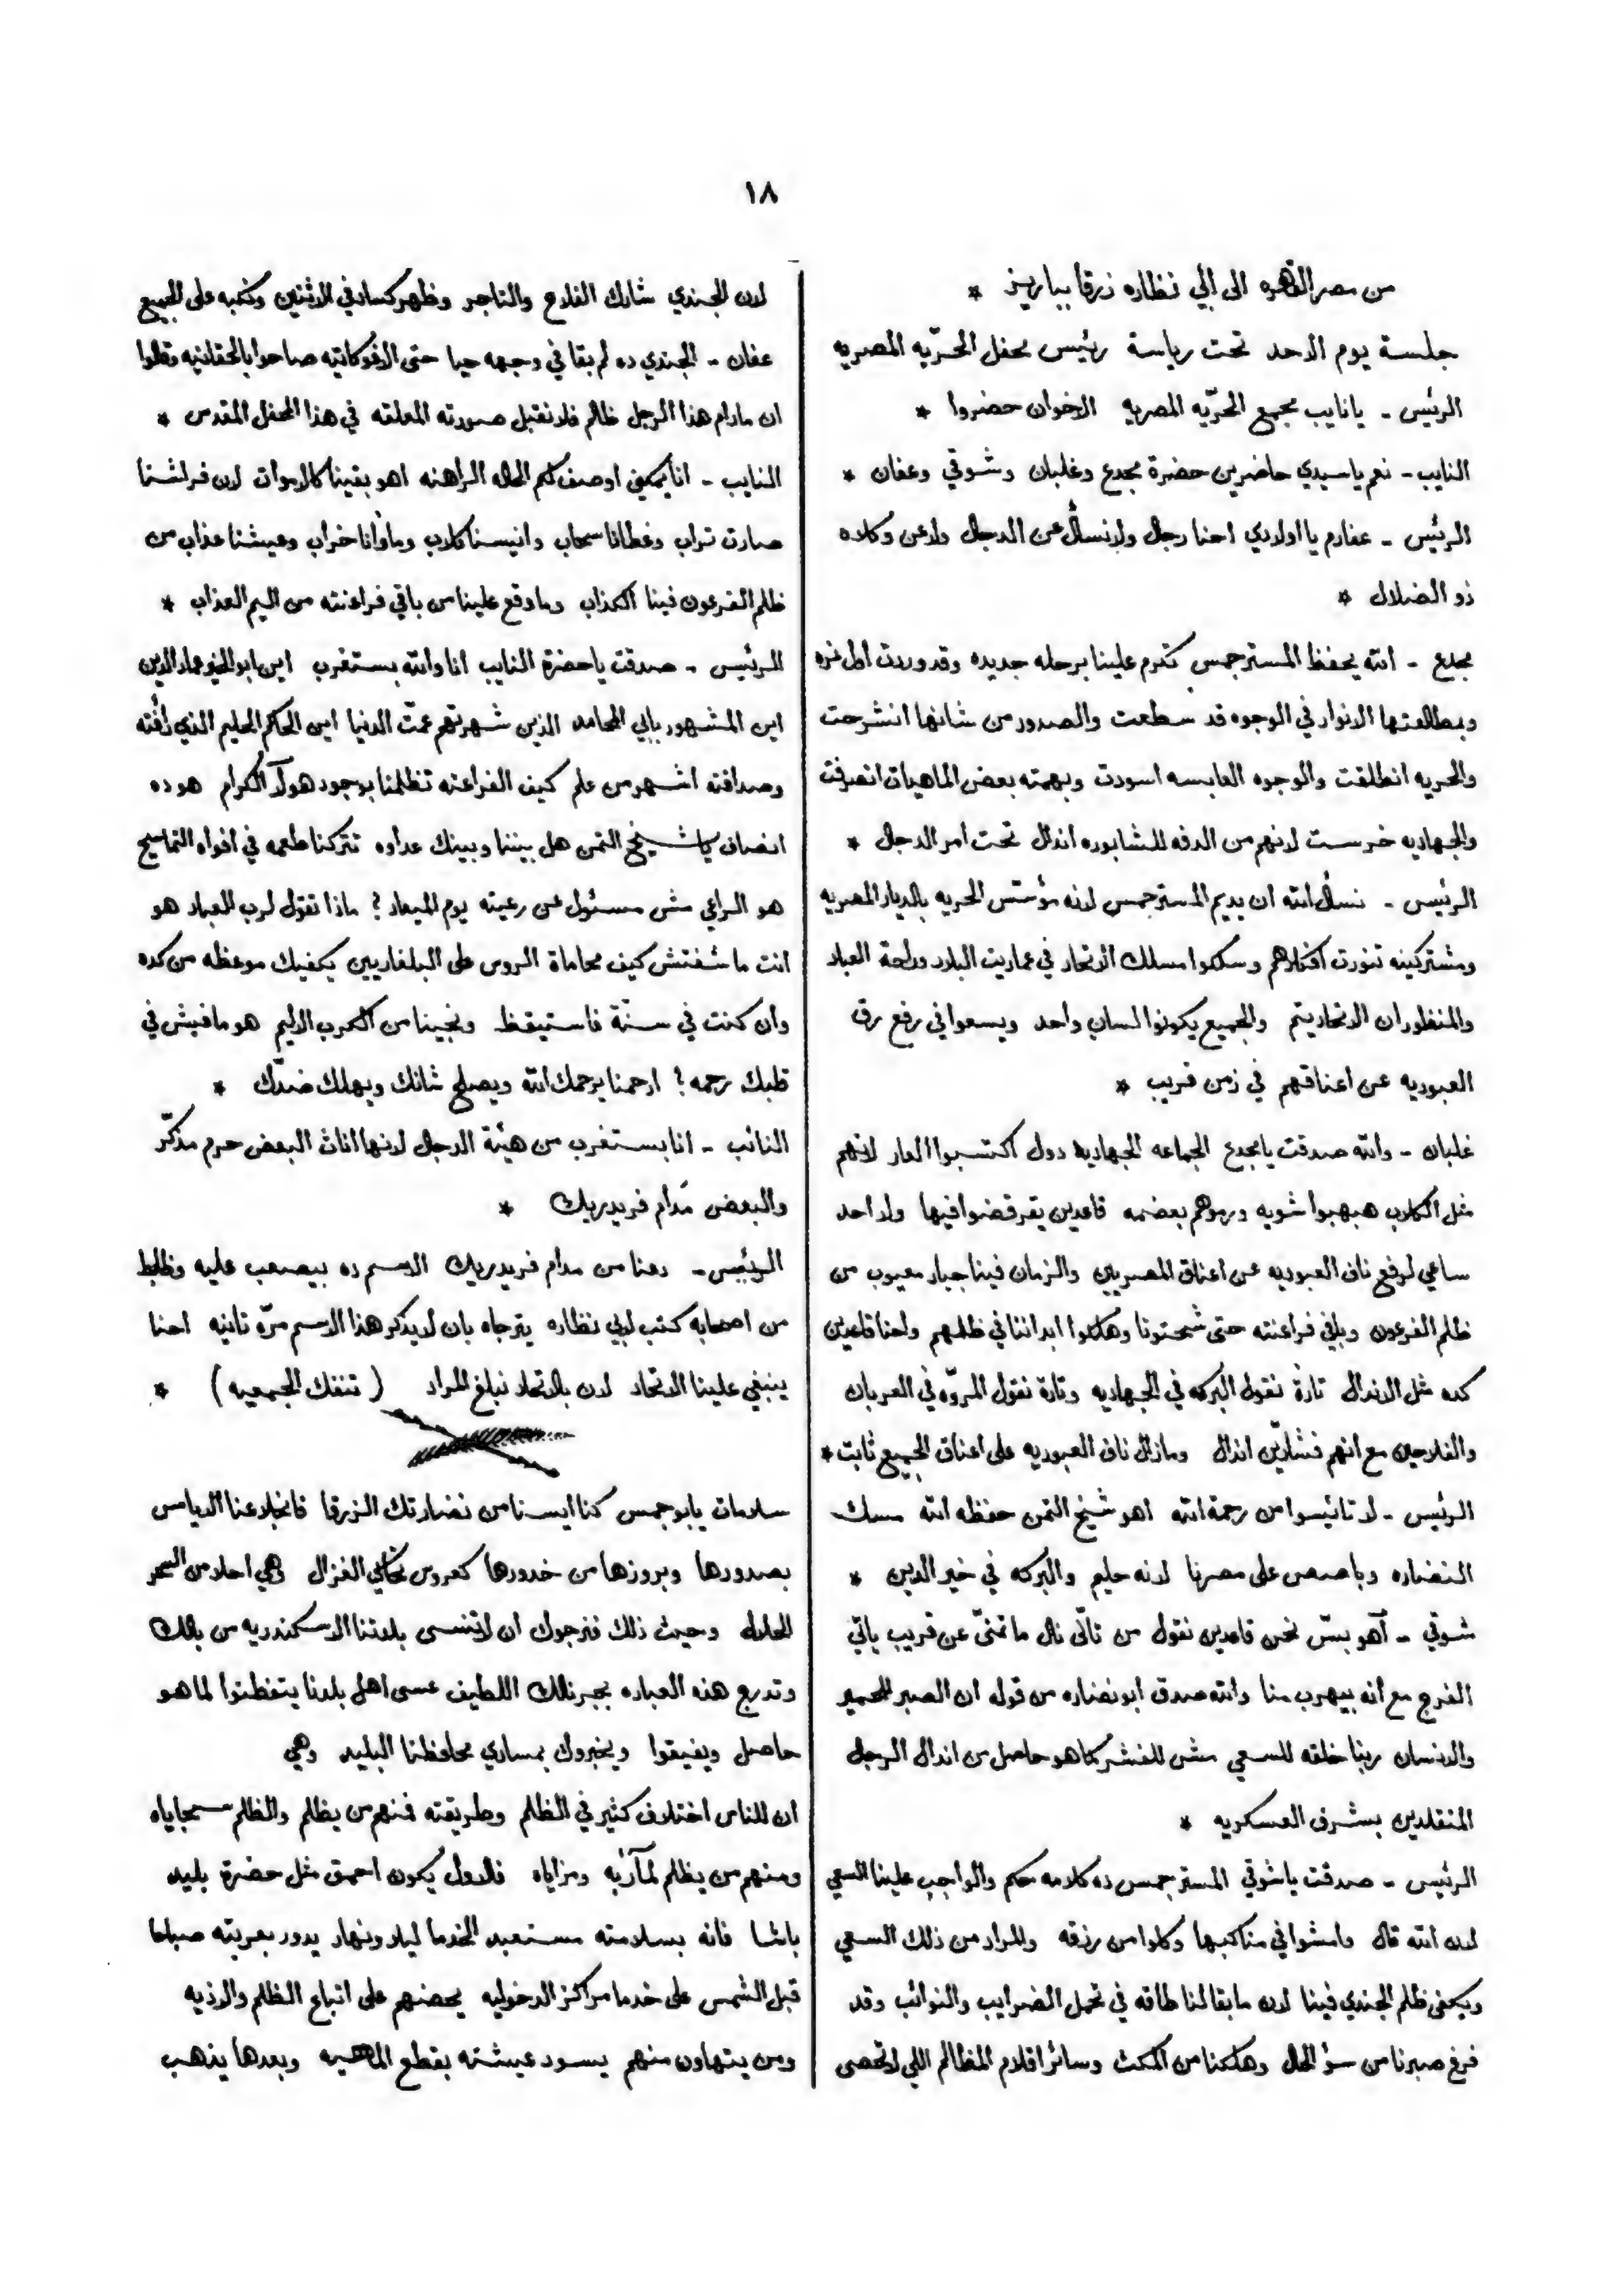 ١٨
من مصر القاهره الى ابي نظاره زرقا بباريز *
جلسة يوم الاحد تحت رياسة رئيس محفل الحرّيه المصريه
الرئيس - يا نايب مجمع الحرّيه المصريه الاخوان حضروا *
النايب - نعم يا سيدي حاضرين حضرة مجدع وغلبان وشوقي وعفان *
الرئيس - عفارم يا اولادي احنا رجال ولا نسأل عن الدجال ولا عن وكلاه
ذو الضلال *
مجدع - الله يحفظ المستر جمس تكرم علينا برحله جديده وقد وردت اول نمره
وبمطالعتها الانوار في الوجوه قد سطعت والصدور من شانها انشرحت
والحريه انطلقت والوجوه العابسه اسودت وبهمته بعض الماهيات انصرفت
والجهاديه خرست لانهم من الدفه للشابوره انذال تحت امر الدجال *
الرئيس - نسأل الله ان يديم المستر جمس لانه مؤسّس الحريه بالديار المصريه
ومشتركينه تنورت افكارهم وسلكوا مسلك الاتحاد في عماريت البلاد وراحة العباد
والمنظور ان الاتحاد يتم والجميع يكونوا لسان واحد ويسعوا في رفع رق
العبوديه عن اعناقهم في زمن قريب *
غلبان - والله صدقت يا مجدع الجماعه الجهاديه دول اكتسبوا العار لانهم
مثل الكلاب هبهبوا شويه ورموهم بعضمه قاعدين يقرقضوا فيها ولا احد
ساعي لرفع ناف العبوديه عن اعناق المصريين والزمان فينا جبار معيوب من
ظلم الفرعون وباقي فراعنته حتى شحتونا وهلكوا ابداننا في ظلمهم واحنا قاعدين
كده مثل الانذال تارة نقول البركه في الجهاديه وتارة نقول المروّه في العربان
والفلاحين مع انهم فشارّين انذال ومازال ناف العبوديه على اعناق الجميع ثابت *
الرئيس - لا تائيسوا من رحمة الله اهو شيخ التمن حفظه الله مسك
النضاره وباصص على مصرنا لانه حليم والبركه في خير الدين *
شوقي - آهو بسّ نحن قاعدين نقول من تأنّى نال ما تمنّى عن قريب يأتي
الفرج مع انه بيهرب منا والله صدق ابو نضاره من قوله ان الصبر للحمير
والانسان ربنا خلقه للسعي مش للفشر كما هو حاصل من انذال الرجال
المتقلدين بشرف العسكريه *
الرئيس - صدقت يا شوقي المستر جمس ده كلامه حكم والواجب علينا السعي
لان الله قال وامشوا في مناكبها وكلوا من رزقه والمراد من ذلك السعي
ويكفى ظلم الجندي فينا لان ما بقا لنا طاقه في تحمل الضرايب والنوائب وقد
فرغ صبرنا من سؤ الحال وهلكنا من المكث وسائر اقلام المظالم اللي لا تحصى
لان الجندي شارك الفلاح والتاجر وظهر كساد في الاثنين وكعبه على الجميع
عفان - الجندي ده لم بقا في وجهه حيا حتى الافوكاتيه صاحوا بالحقانيه وقالوا
ان مادام هذا الرجل ظالم فلا نقبل صورته المعلقه في هذا المحفل المقدس *
النايب - انا يمكني اوصف لكم الحاله الراهنه اهو بقينا كالاموات لان فراشنا
صارت تراب وغطانا سحاب وانيسنا كلاب وماوانا خراب وعيشنا عذاب من
ظلم الفرعون فينا الكذاب وما وقع علينا من باقي فراعنته من اليم العذاب *
الرئيس - صدقت يا حضرة النايب انا والله بستغرب اين ابو الخير عماد الدين
اين المشهور بابي المحامد الذين شهرتهم عمّت الدنيا اين الحاكم الحليم الذي رأفته
وصداقته اشهر من علم كيف الفراعنه تظلمنا بوجود هولآ الكرام هو ده
انصاف يا شيخ التمن هل بيننا وبينك عداوه تتركنا طعمه في افواه التماسيح
هو الراعي مش مسئول عن رعيته يوم الميعاد ؟ ماذا تقول لرب العباد هو
انت ما شفتش كيف محاماة الروس على البلغاريين يكفيك موعظه من كده
وان كنت في سنّة فاستيقظ ونجينا من الكرب الاليم هو ما فيش في
قلبك رحمه ؟ ارحمنا يرحمك الله ويصلح شانك ويهلك ضدّك *
النائب - انا بستغرب من هيئة الدجال لانها اناث البعض حرم مذكّر
والبعض مَدام فريدريك *
الرئيس - دعنا من مدام فريدريك الاسم ده بيصعب عليه وظابط
من اصحابه كتب لابي نظاره يترجاه بان لا يذكر هذا الاسم مرّة تانيه احنا
ينبغي علينا الاتحاد لان بالاتحاد نبلغ المراد ( تنفك الجمعيه ) *
سلامات يا بو جمس كنا ايسنا من نضارتك الزرقا فانجلا عنا الاياس
بصدورها وبروزها من خدورها كعروس تحاكي الغزال وهي احلا من السحر
الحلال وحيث ذلك فنرجوك ان لا تنسى بلدتنا الاسكندريه من بالك
وتدرج هذه العباره بجرنالك اللطيف عسى اهل بلدنا يتفطنوا لما هو
حاصل ويفيقوا ويخبروك بمساري محافظنا البليد وهي
ان للناس اختلاف كثير في الظلم وطريقته فمنهم من يظلم والظلم سجاياه
ومنهم من يظلم لمآربه ومزاياه فالاول يكون احمق مثل حضرة بليد
باشا فانه بسلامته مستعبد الخدما ليلا ونهار يدور بعربيّته صباحا
قبل الشمس على خدما مراكز الدخوليه يحضهم على اتباع الظلم والاذيه
ومن يتهاون منهم يسود عيشته بقطع الماهيه وبعدها يذهب